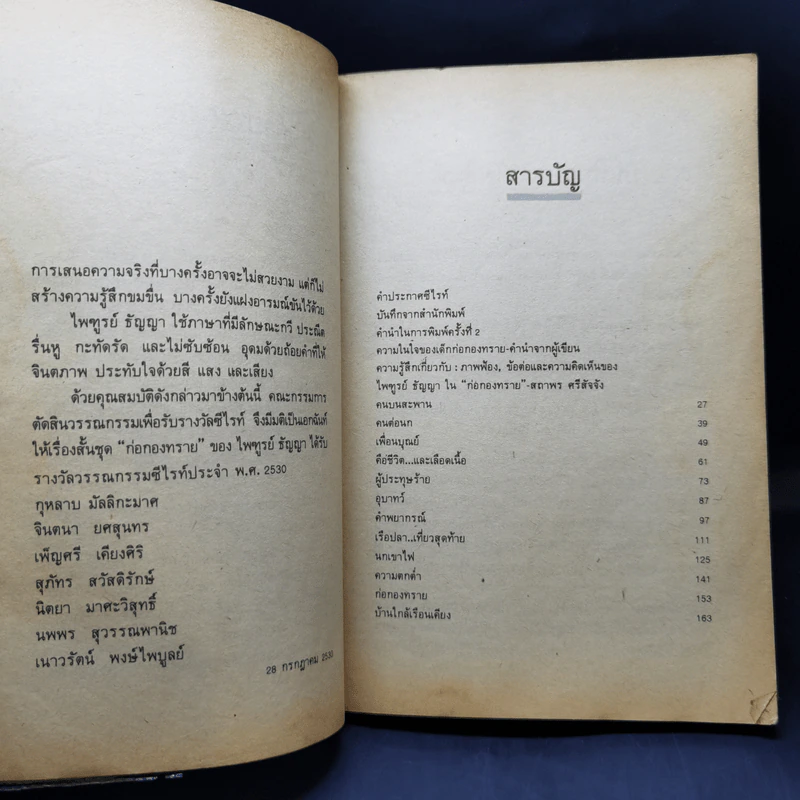 การเสนอความจริงที่บางครั้งอาจจะไม่สวยงาม แต่ก็ไม่
สร้างความรู้สึกขมขื่น บางครั้งยังแฝงอารมณ์ขันไว้ด้วย
ไพฑูรย์ ธัญญา ใช้ภาษาที่มีลักษณะกวี ประณีต
รื่นหู กะทัดรัด และไม่ซับซ้อน อุดมด้วยถ้อยคำที่ให้
จินตภาพ ประทับใจด้วยสี แสง และเสียง
ด้วยคุณสมบัติดังกล่าวมาข้างต้นนี้ คณะกรรมการ
ตัดสินวรรณกรรมเพื่อรับรางวัลซีไรท์ จึงมีมติเป็นเอกฉันท์
ให้เรื่องสั้นชุด "ก่อกองทราย" ของ ไพฑูรย์ ธัญญา ได้รับ
รางวัลวรรณกรรมซีไรท์ประจำ พ.ศ. 2530
กุหลาบ มัลลิกะมาศ
จินตนา ยศสุนทร
เพ็ญศรี เคียงศิริ
สุภัทร สวัสดิรักษ์
นิตยา มาศะวิสุทธิ์
นพพร สุวรรณพานิช
เนาวรัตน์ พงษ์ไพบูลย์
28 กรกฎาคม 2530
สารบัญ
คำประกาศซีไรท์
บันทึกจากสำนักพิมพ์
คำนำในการพิมพ์ครั้งที่ 2
ความในใจของเด็กก่อกองทราย-คำนำจากผู้เขียน
ความรู้สึกเกี่ยวกับ : ภาพฟ้อง, ข้อต่อและความคิดเห็นของ
ไพฑูรย์ ธัญญา ใน "ก่อกองทราย"-สถาพร ศรีสัจจัง
คนบนสะพาน 27
คนต่อนก 39
เพื่อนบุณย์ 49
คือชีวิต...และเลือดเนื้อ 61
ผู้ประทุษร้าย 73
อุบาทว์ 87
คำพยากรณ์ 97
เรือปลา..เที่ยวสุดท้าย 111
นกเขาไฟ 125
ความตกต่ำ 141
ก่อกองทราย 153
บ้านใกล้เรือนเคียง 163